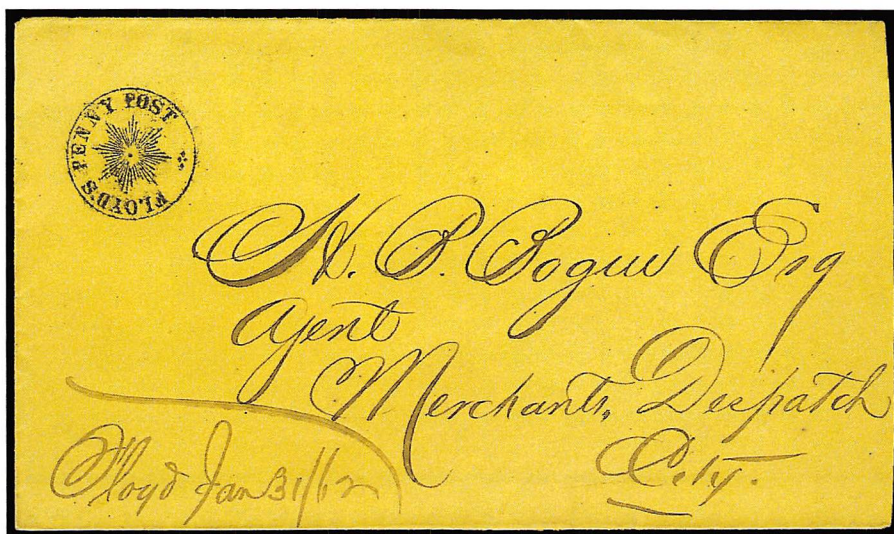 FLOYD'S PENNY POST
H. P. Bogue Esq
Agent
Merchants, Despatch
City.
Floyd Jan 31/62